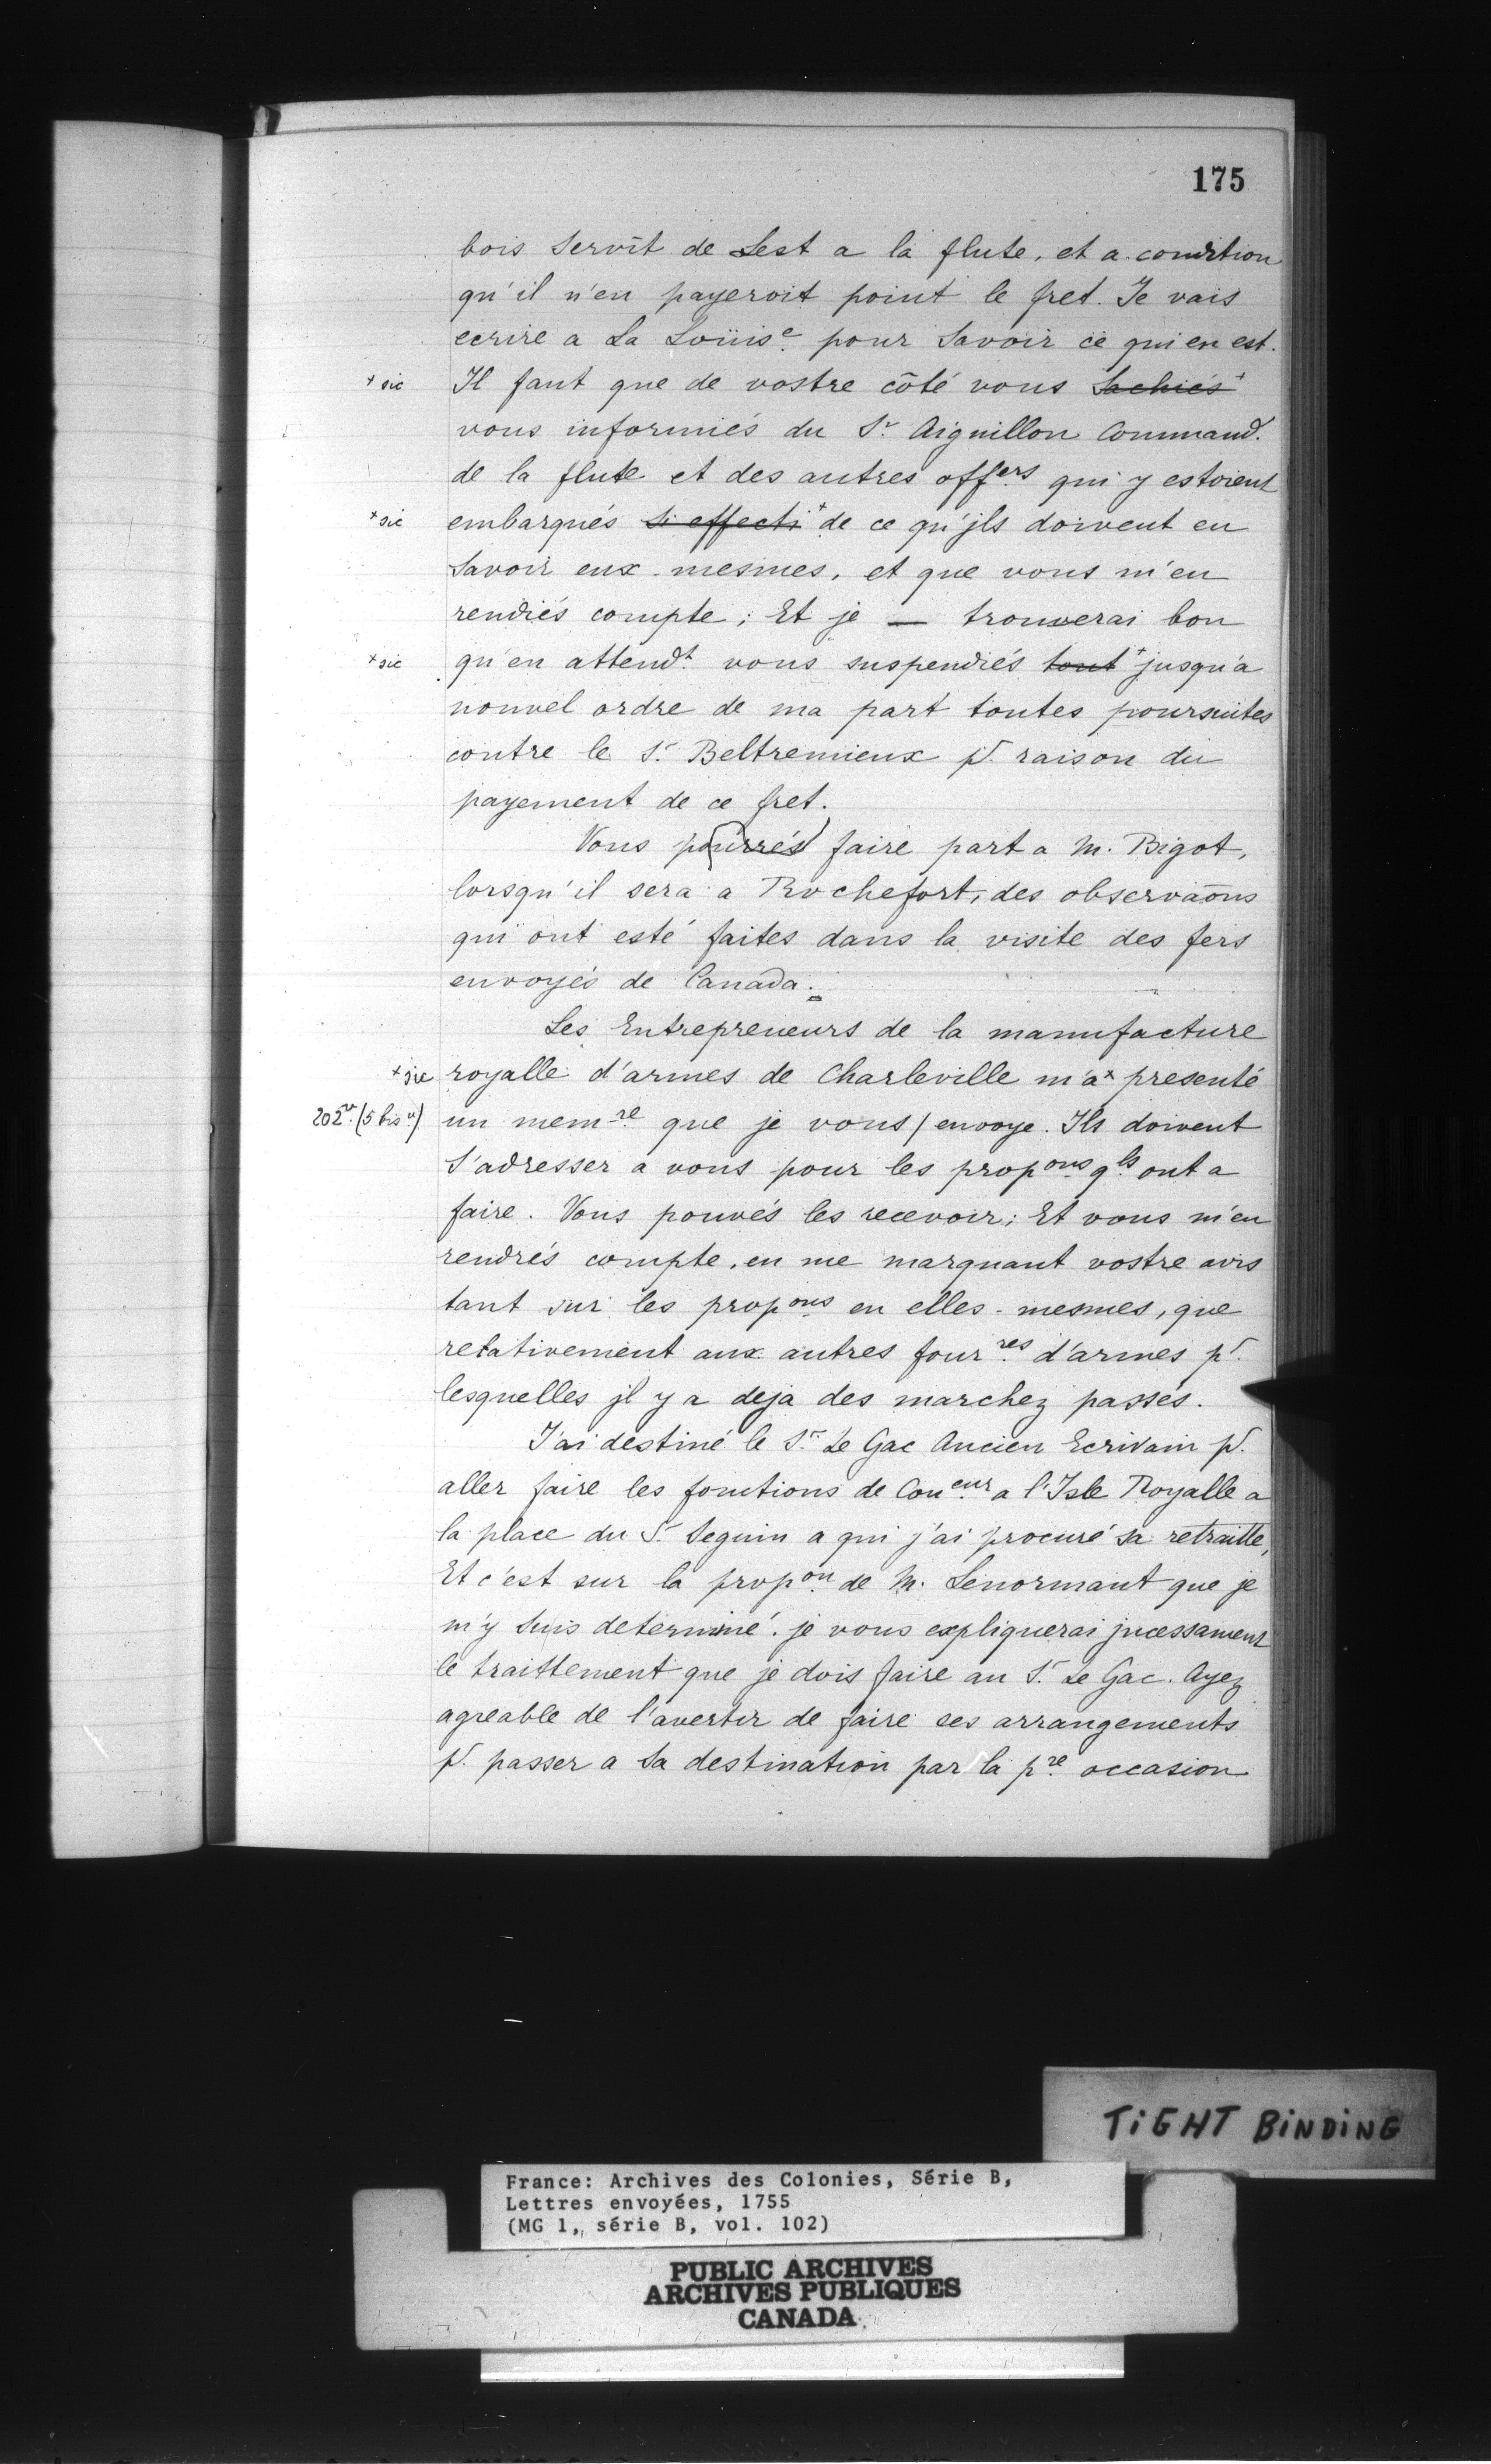 175
bois Servît de Lest a la flute, et a condition
qu'il n'en payeroit point le fret. Je vais
ecrire a La Loüis.e pour Savoir ce qui en est.
+ sic Il faut que de vostre côté vous Sachiés+
vous informiés du S.r Aiguillon Command.t
de la flute et des autres off.ers qui y estoient
+ sic embarqués Si effecti+ de ce qu'jls doivent en
Savoir eux-mesmes, et que vous m'en
rendiés compte; Et je — trouverai bon
+ sic qu'en attend.t vous suspendiés tout+ jusqu'a
nouvel ordre de ma part toutes poursuites
contre le S.r Beltremieux p.r raison du
payement de ce fret.
Vous pourrés faire part a M. Bigot,
lorsqu'il sera a Rochefort, des observaõns
qui ont esté faites dans la visite des fers
envoyés de Canada.
Les Entrepreneurs de la manufacture
+ sic royalle d'armes de Charleville m'a+ presenté
202v. (5 bis v.) un mem.re que je vous / envoye. Ils doivent
S'adresser a vous pour les prop.ons q.ls ont a
faire. Vous pouvés les recevoir; Et vous m'en
rendrés compte, en me marquant vostre avis
tant sur les prop.ons en elles-mesmes, que
relativement aux autres four.res d'armes p.r
lesquelles jl y a deja des marchez passés.
J'ai destiné le S.r Le Gac Ancien Ecrivain p.r
aller faire les fonctions de Con.eur a l'Isle Royalle a
la place du S.r Seguin a qui j'ai procuré sa retraitte,
Et c'est sur la prop.on de M. Lenormant que je
m'y Suis determiné. je vous expliquerai jncessament
le traittement que je dois faire au S.r Le Gac. Ayez
agreable de l'avertir de faire ses arrangements
p.r passer a Sa destination par la p.re occasion
TIGHT BINDING
France: Archives des Colonies, Série B,
Lettres envoyées, 1755
(MG 1, série B, vol. 102)
PUBLIC ARCHIVES
ARCHIVES PUBLIQUES
CANADA